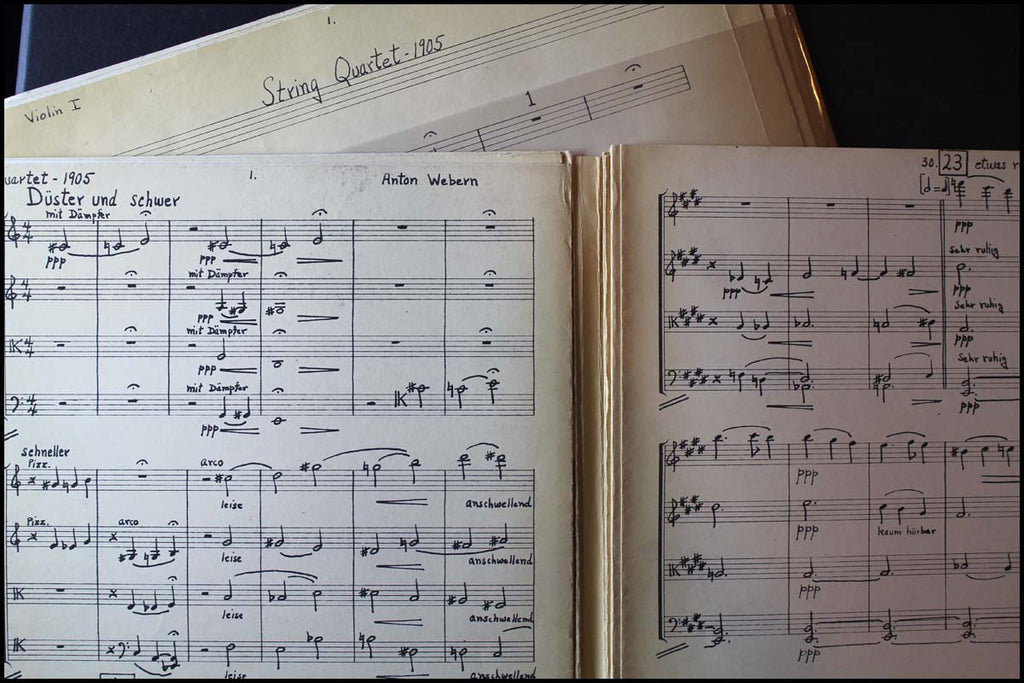 1.
String Quartet - 1905
Violin I
1
uartet - 1905
1.
Anton Webern
Düster und schwer
mit Dämpfer
ppp
ppp
mit Dämpfer
ppp
mit Dämpfer
ppp
mit Dämpfer
ppp
schneller
Pizz.
arco
leise
anschwellend
Pizz.
arco
leise
anschwellend
leise
anschwellend
leise
anschwellend
30. 23 etwas r
ppp
sehr ruhig
ppp
ppp
sehr ruhig
ppp
sehr ruhig
ppp
ppp
ppp
kaum hörbar
ppp
ppp